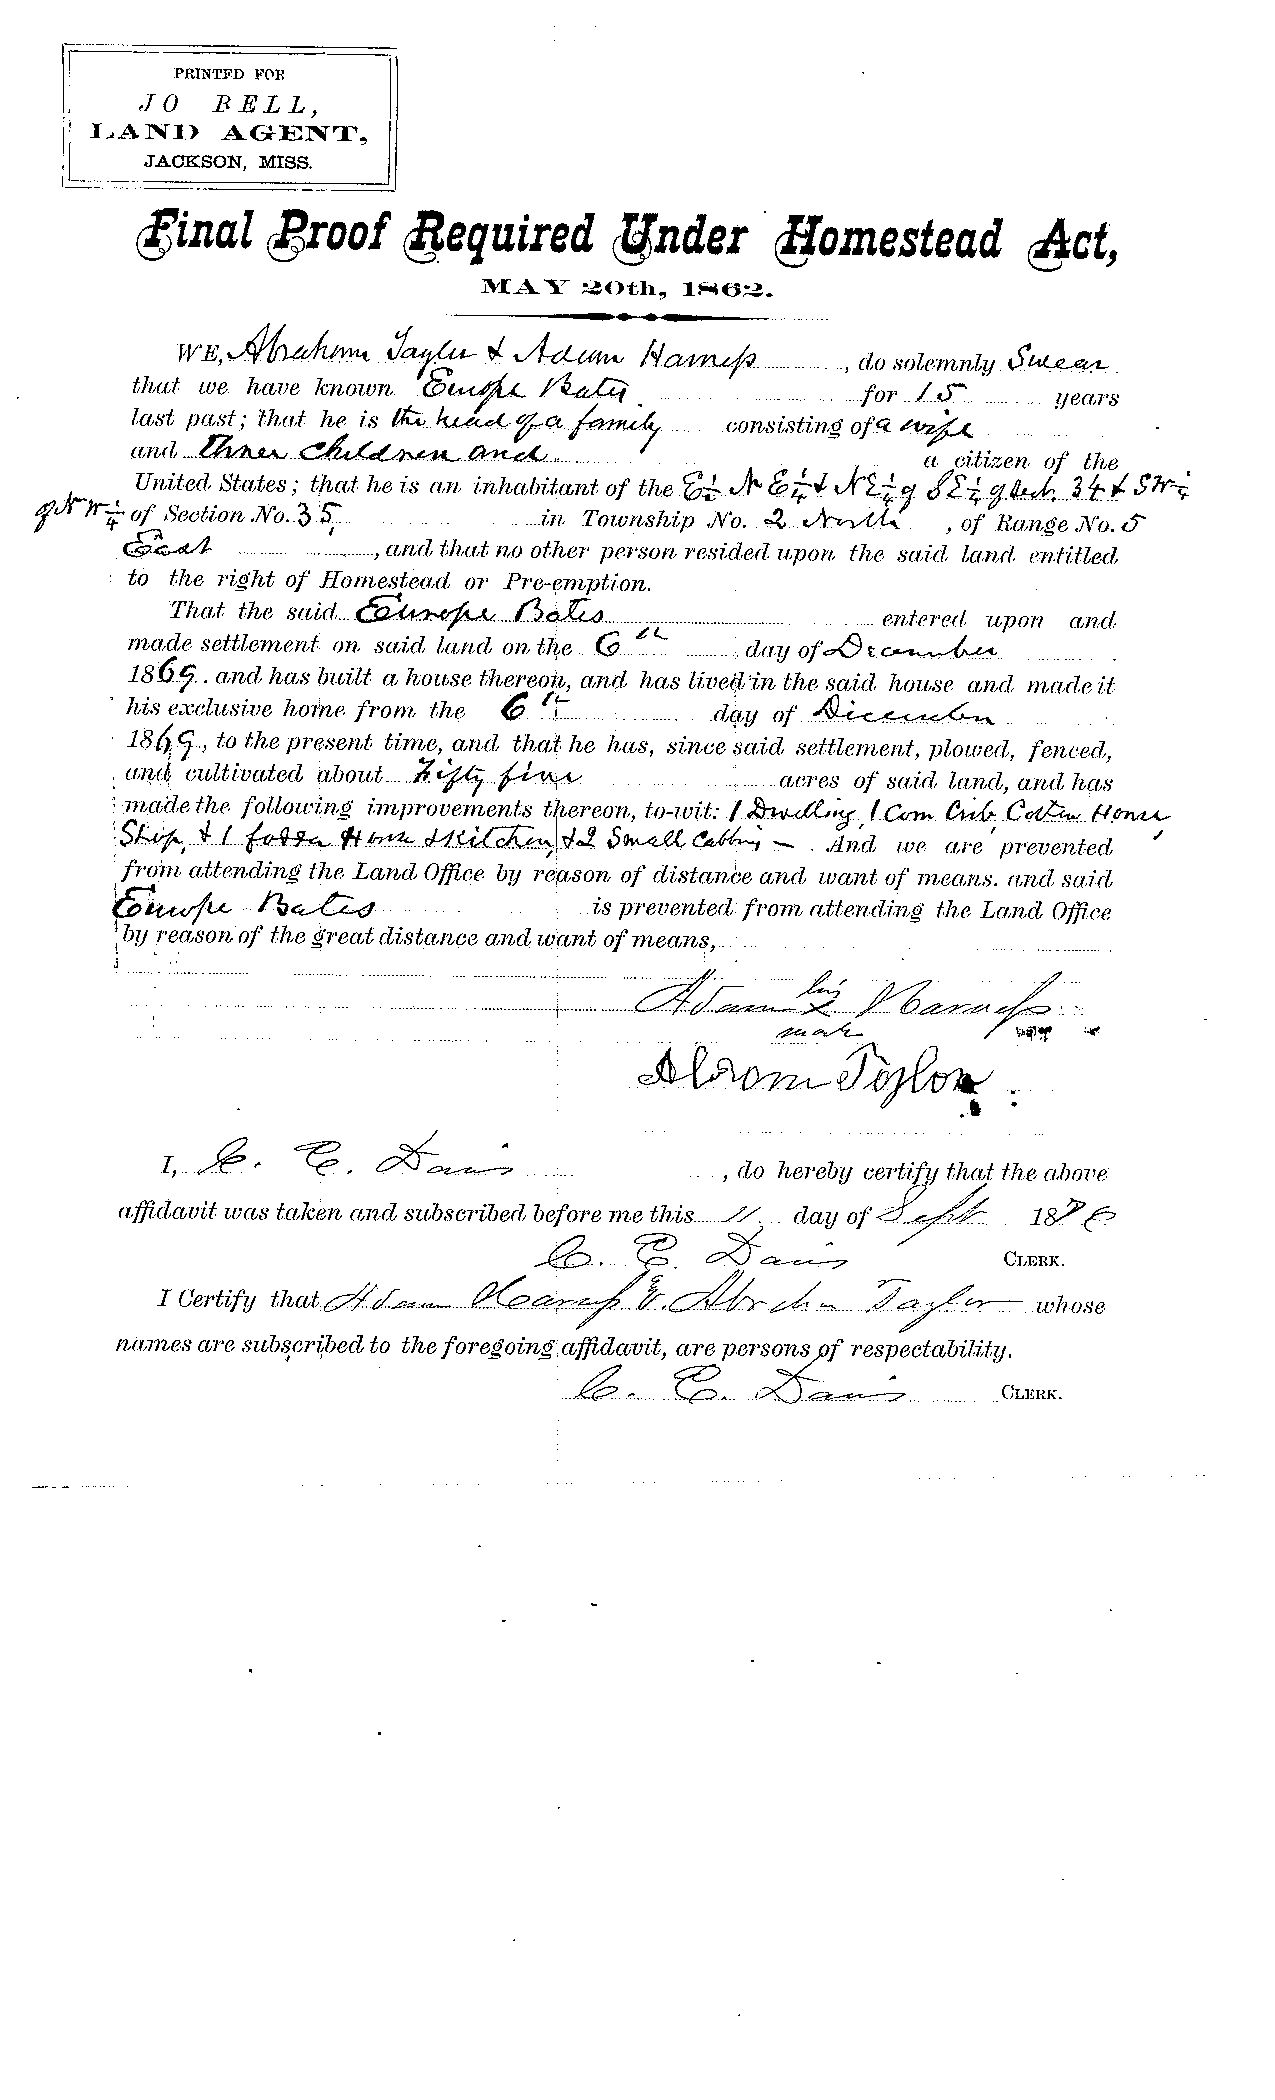 PRINTED FOR
JO BELL,
LAND AGENT,
JACKSON, MISS.
Final Proof Required Under Homestead Act,
MAY 20th, 1862.
WE, Abraham Taylor & Adam Harness, do solemnly Swear
that we have known Europe Bates for 15 years
last past; that he is the head of a family consisting of a wife
and three children and a citizen of the
United States; that he is an inhabitant of the E½ N E¼ & N E¼ of S E¼ of Sect. 34 & S W¼
of N W¼ of Section No. 35, in Township No. 2 North, of Range No. 5
East, and that no other person resided upon the said land entitled
to the right of Homestead or Pre-emption.
That the said Europe Bates entered upon and
made settlement on said land on the 6th day of December
1869, and has built a house thereon, and has lived in the said house and made it
his exclusive home from the 6th day of December
1869, to the present time, and that he has, since said settlement, plowed, fenced,
and cultivated about Fifty five acres of said land, and has
made the following improvements thereon, to-wit: 1 Dwelling, 1 Corn Crib, Cotton House,
Shop, & 1 fodder House & Kitchen, & 2 Small Cabbins — . And we are prevented
from attending the Land Office by reason of distance and want of means. and said
Europe Bates is prevented from attending the Land Office
by reason of the great distance and want of means,
his
Adam x Harness
mark
Abrom Taylor
I, C. E. Davis, do hereby certify that the above
affidavit was taken and subscribed before me this 11 day of Sept 1876
C. E. Davis CLERK.
I Certify that Adam Harness & Abraham Taylor whose
names are subscribed to the foregoing affidavit, are persons of respectability.
C. E. Davis CLERK.